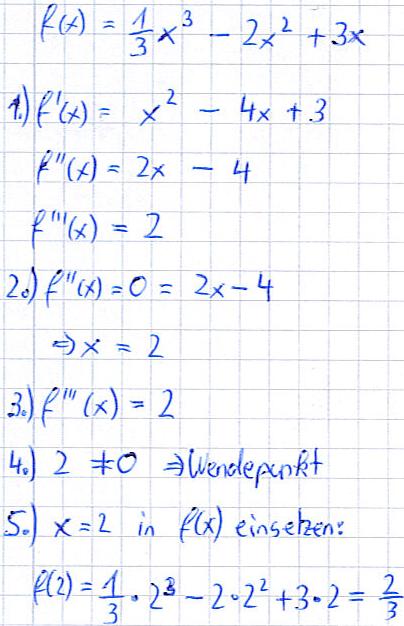 f(x) = 1/3 x³ - 2x² + 3x
1.) f'(x) = x² - 4x + 3
f''(x) = 2x - 4
f'''(x) = 2
2.) f''(x) = 0 = 2x - 4
⇒ x = 2
3.) f'''(x) = 2
4.) 2 ≠ 0 ⇒ Wendepunkt
5.) x = 2 in f(x) einsetzen:
f(2) = 1/3 · 2³ - 2 · 2² + 3 · 2 = 2/3